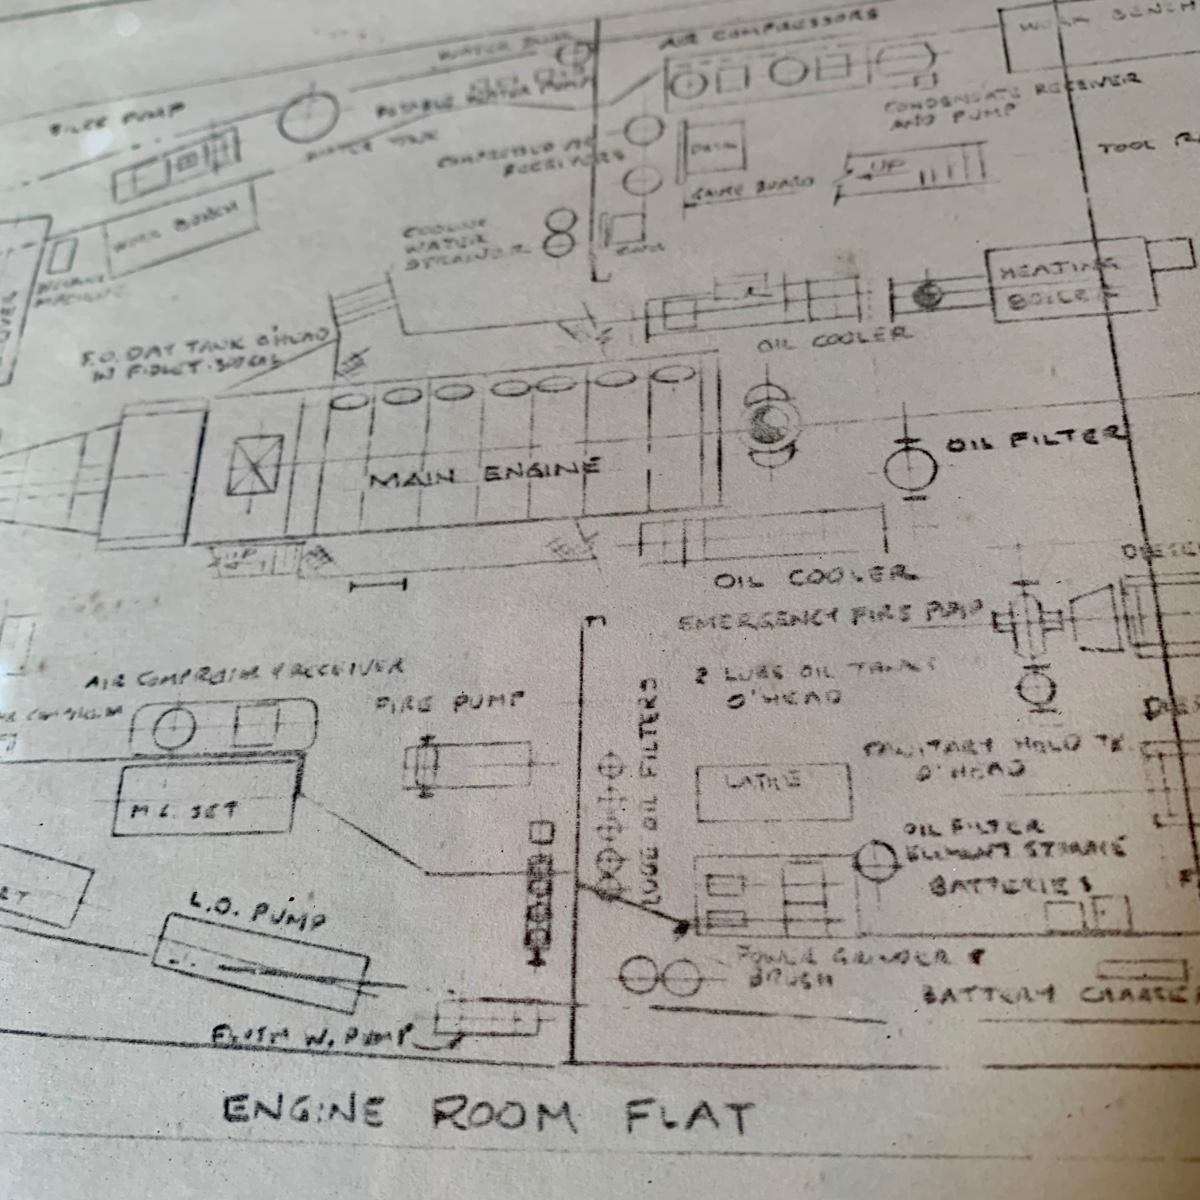 AIR COMPRESSORS
WORK BENCH
WATER PUMP
BILGE PUMP
POTABLE WATER PUMP
WATER TANK
CONDENSATE RECEIVER
AND PUMP
TOOL
COMPRESSED AIR
RECEIVERS
GAUGE BOARD
UP
WORK BENCH
COOLING
WATER
STRAINER
MACHINE
HEATING
BOILER
F.O. DAY TANK O'HEAD
OIL COOLER
MAIN ENGINE
OIL FILTER
UP
OIL COOLER
EMERGENCY FIRE PUMP
AIR COMPRESSOR & RECEIVER
FIRE PUMP
2 LUBE OIL TANKS
O'HEAD
LUBE OIL FILTERS
SANITARY HOLD TK.
O'HEAD
M.G. SET
LATHE
OIL FILTER
ELEMENT STORAGE
BATTERIES
L.O. PUMP
POWER GRINDER &
BRUSH
BATTERY CHARGER
FLUSH W. PUMP
ENGINE ROOM FLAT